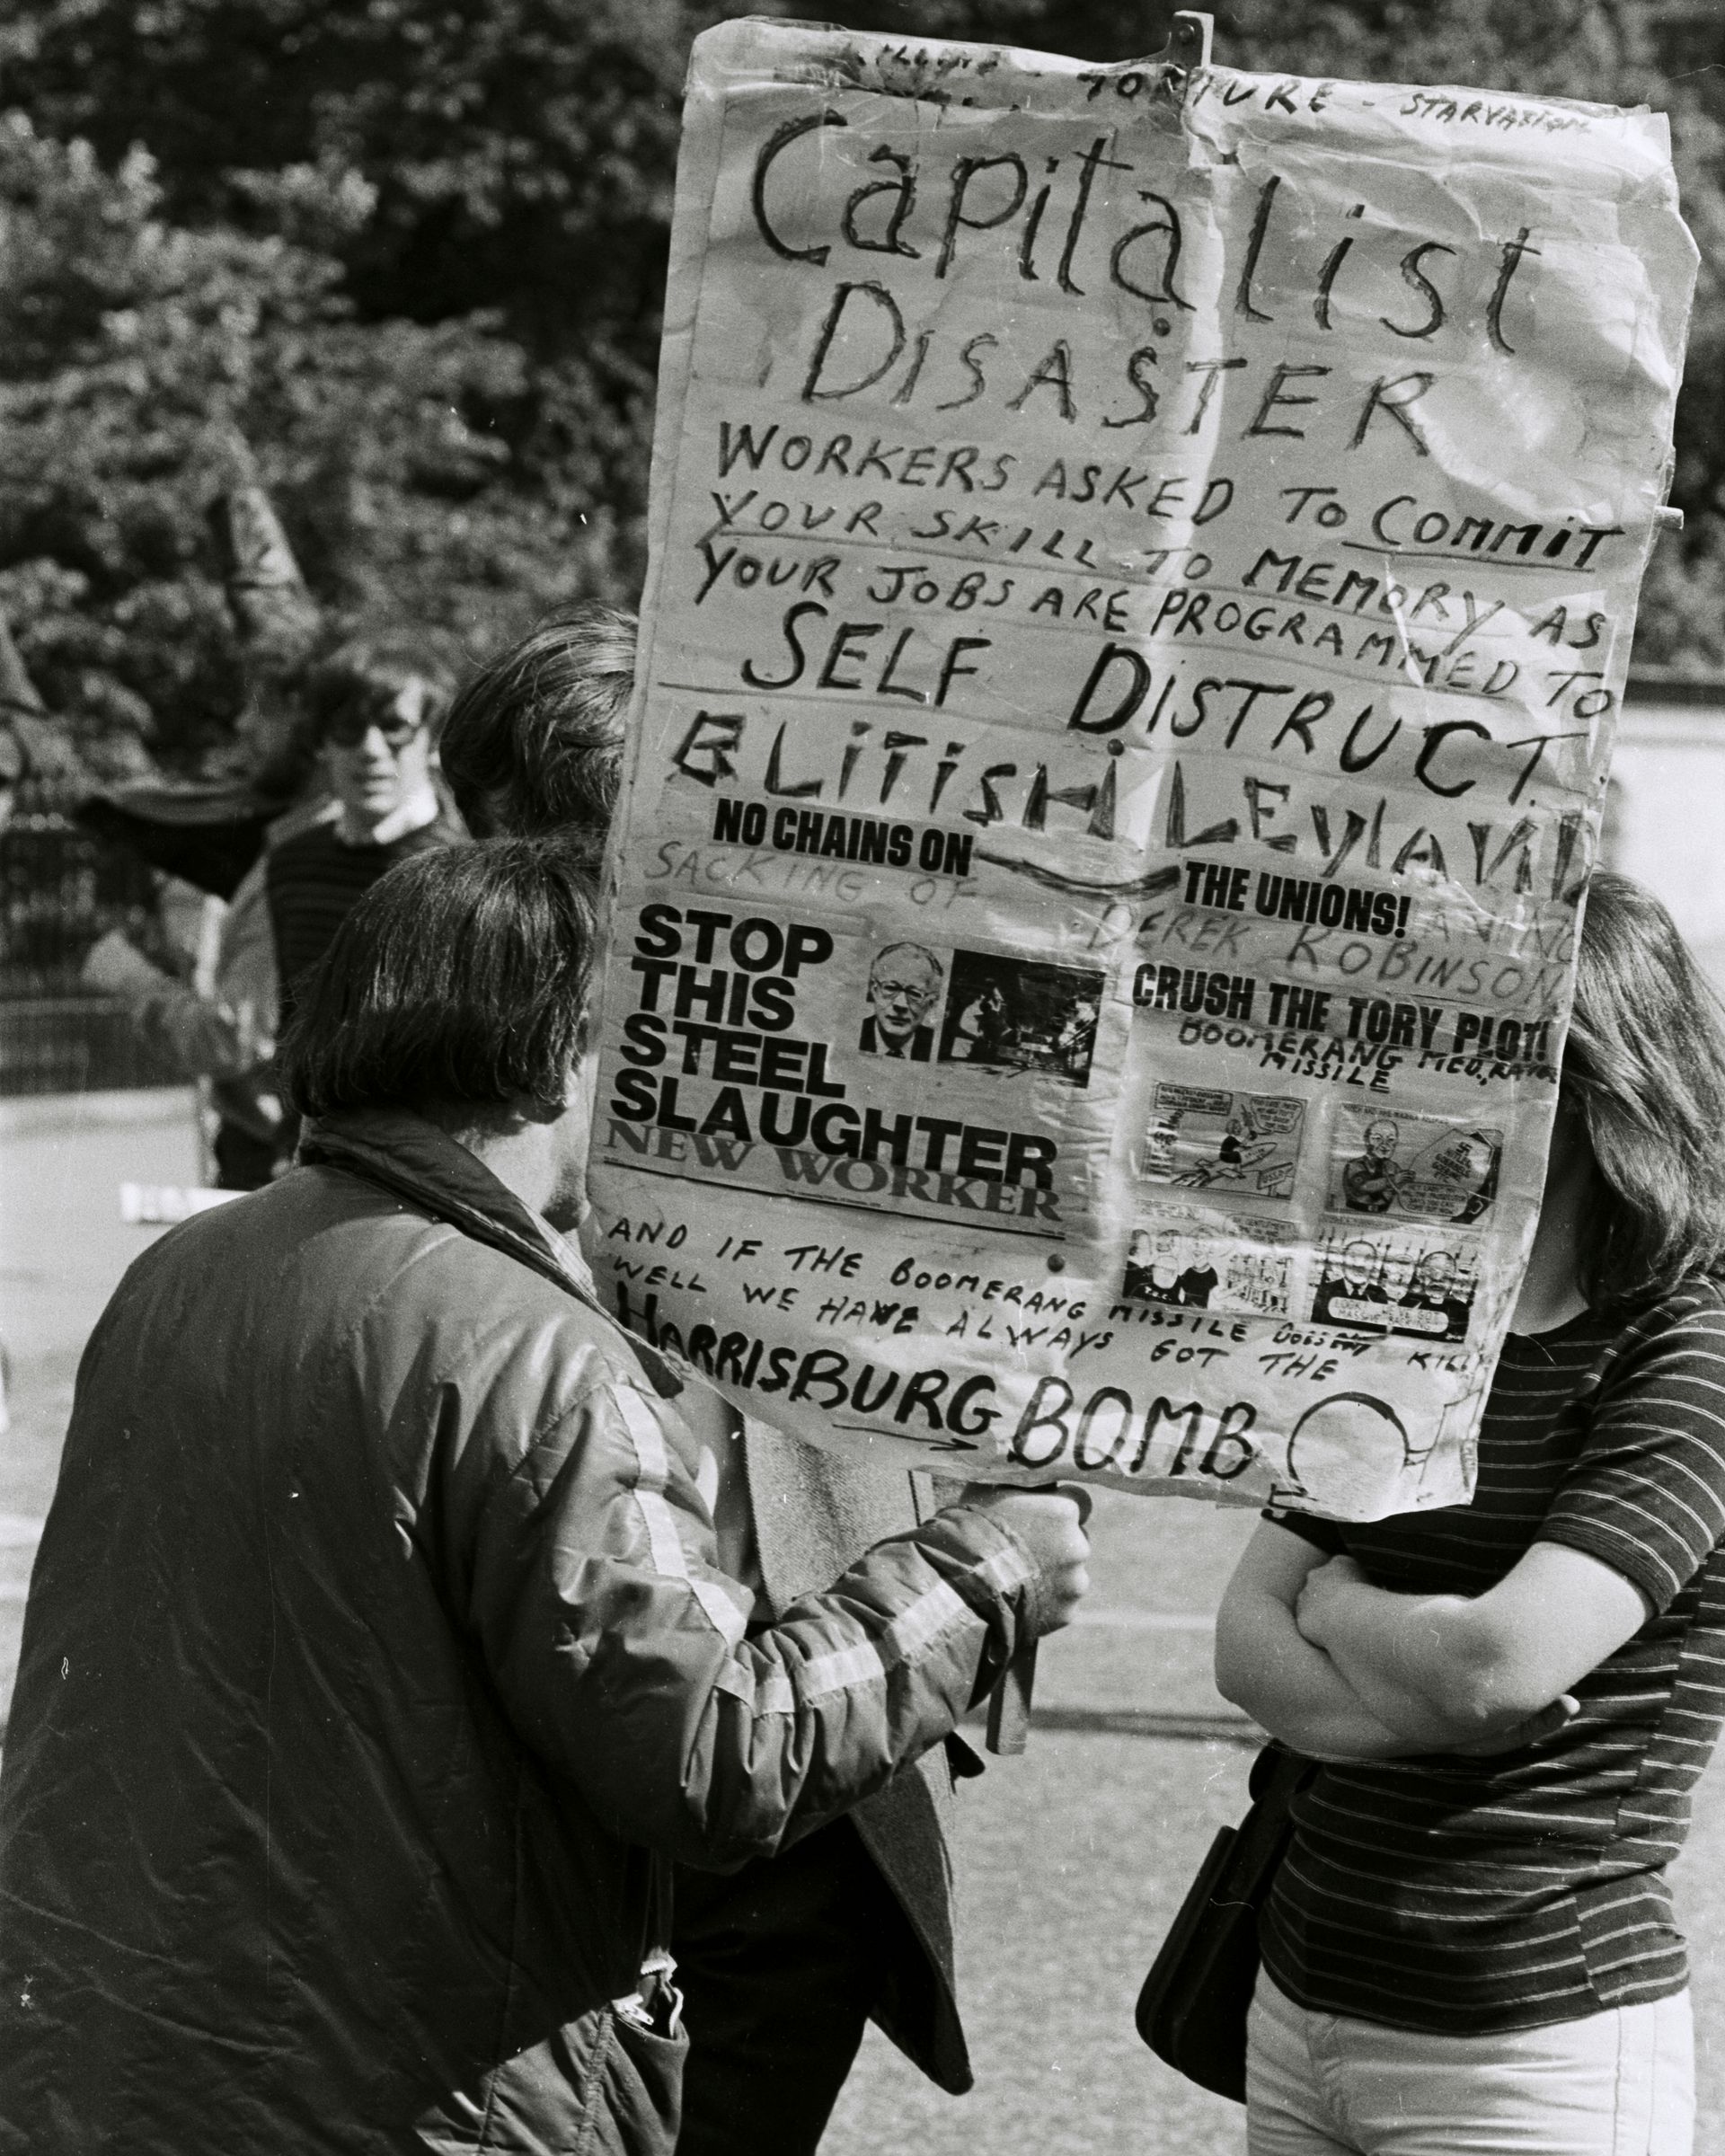 TORTURE - STARVATION
Capitalist
DISASTER
WORKERS ASKED TO COMMIT
YOUR SKILL TO MEMORY AS
YOUR JOBS ARE PROGRAMMED TO
SELF DISTRUCT.
BLITISH LEYLAND
NO CHAINS ON
THE UNIONS!
SACKING OF
DEREK ROBINSON
STOP
THIS
STEEL
SLAUGHTER
NEW WORKER
CRUSH THE TORY PLOT!
BOOMERANG
MISSILE
AND IF THE BOOMERANG MISSILE DOESENT KILL
WELL WE HAVE ALWAYS GOT THE
HARRISBURG BOMB